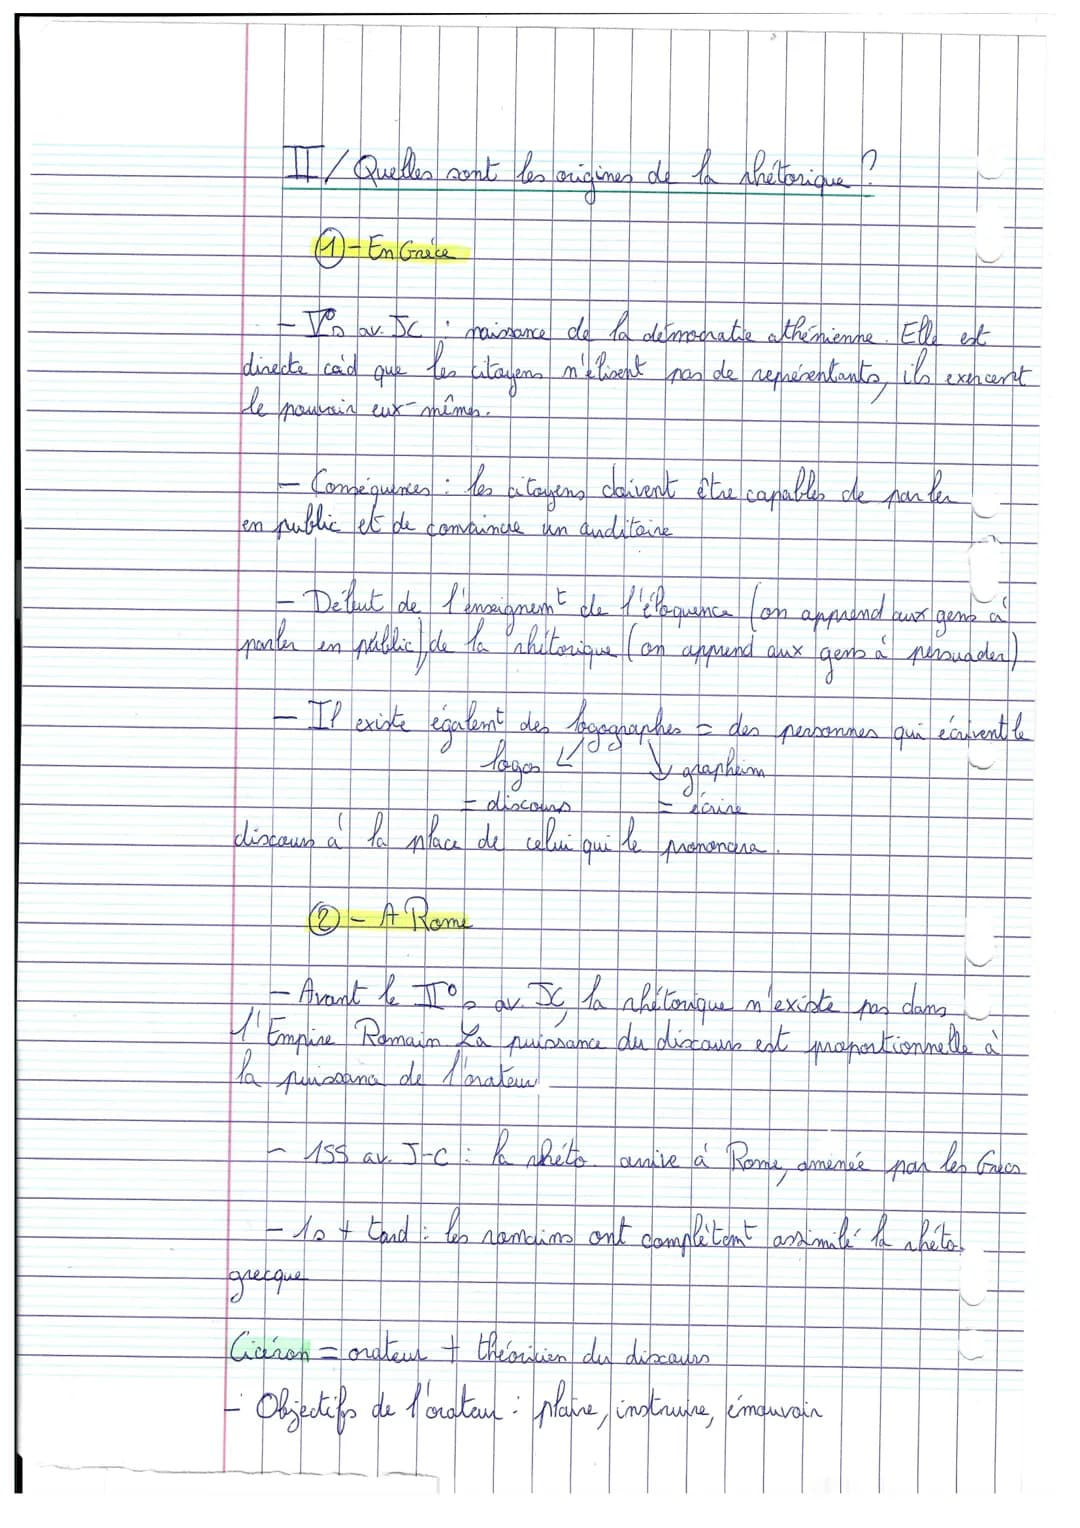 II/ Quelles sont les origines de la rhétorique ?
① - En Grèce
- V°s av. JC : naissance de la démocratie athénienne. Elle est
directe càd que les citoyens n'élisent pas de représentants, ils exercent
le pouvoir eux-mêmes.
- Conséquences : les citoyens doivent être capables de parler
en public et de convaincre un auditoire
- Début de l'enseignemt de l'éloquence (on apprend aux gens à
parler en public), de la rhétorique (on apprend aux gens à persuader)
- Il existe égalemt des logographes = des personnes qui écrivent le
logos ↙ ↘ graphein
= discours = écrire
discours à la place de celui qui le prononcera.
② - A Rome
- Avant le II°s av. JC, la rhétorique n'existe pas dans
l'Empire Romain. La puissance du discours est proportionnelle à
la puissance de l'orateur
- 155 av. J-C : la rhéto. arrive à Rome, amenée par les Grecs
- 1s + tard : les romains ont complètemt assimilé la rhéto.
grecque
Cicéron = orateur + théoricien du discours
- Objectifs de l'orateur : plaire, instruire, émouvoir